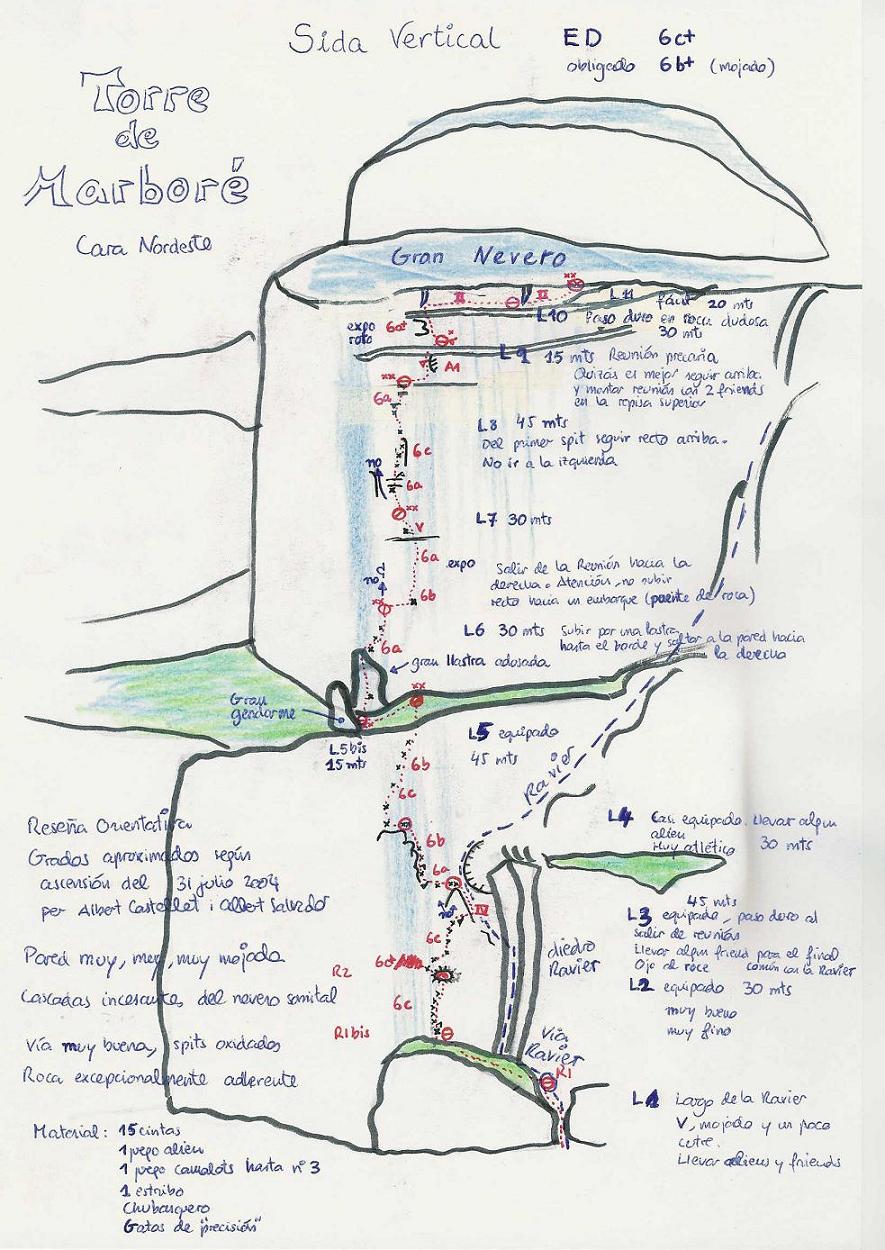 Sida Vertical
ED 6c+
obligado 6b+ (mojado)
Torre
de
Marboré
Cara Nordeste
Gran Nevero
II
II
L11 fácil 20 mts
L10 Paso duro en roca dudosa
30 mts
expo
roto
6a+
L9 15 mts Reunión precaria
Quizás es mejor seguir arriba
y montar reunión con 2 friends
en la repisa superior
V
A1
6a
L8 45 mts
Del primer spit seguir recto arriba.
No ir a la izquierda
6c
no
6a
L7 30 mts
V
6a
expo
Salir de la Reunión hacia la
derecha. Atención, no subir
recto hacia un embarque (puente de roca)
no
6b
L6 30 mts subir por una lastra
hasta el borde y saltar a la pared hacia
la derecha
6a
gran llastra adosada
Gran
gendarme
L5bis
15 mts
L5 equipado
45 mts
6b
6c
Ravier
L4 Casi equipado. Llevar algun
alien
Muy atlético 30 mts
6b
6a
no
IV
45 mts
L3 equipado, paso duro al
salir de reunión
Llevar algun friend para el final
Ojo al roce común con la Ravier
L2 equipado 30 mts
muy bueno
muy fino
diedro
Ravier
6c
R2
6c
R1bis
Vía
Ravier
R1
L1 Largo de la Ravier
V, mojado y un poco
cutre.
Llevar aliens y friends
Reseña Orientativa
Grados aproximados según
ascensión del 31 julio 2004
per Albert Castellet i Albert Salvadó
Pared muy, muy, muy mojada
Cascadas incesantes del nevero somital
Vía muy buena, spits oxidados
Roca excepcionalmente adherente
Material: 15 cintas
1 juego alien
1 juego camalots hasta nº 3
1 estribo
Chubasquero
Gatos de "precisión"